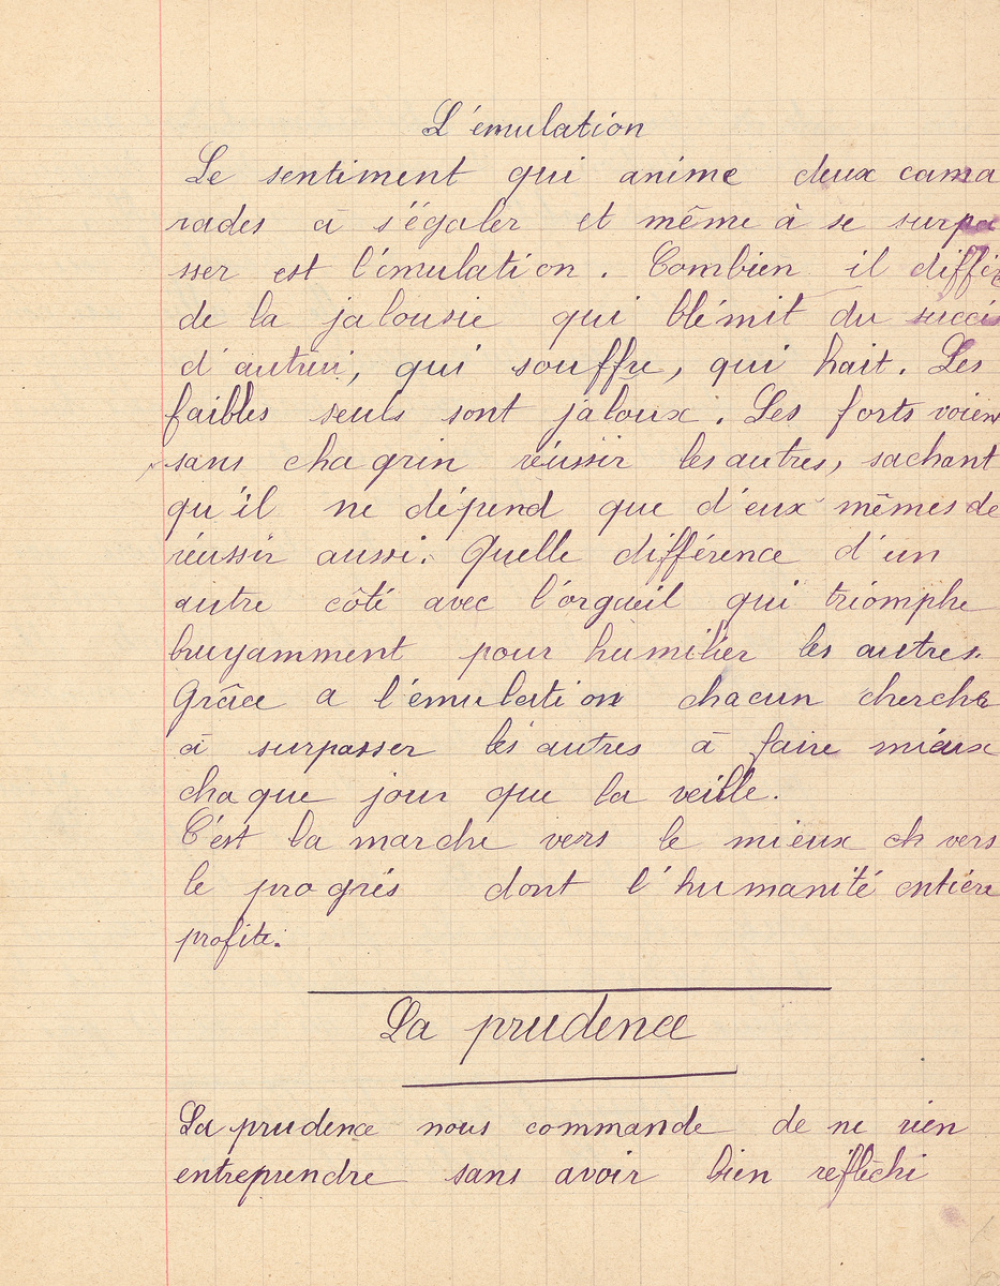 L'émulation
Le sentiment qui anime deux cama
rades à s'égaler et même à se surpa
sser est l'émulation. Combien il diffère
de la jalousie qui blémit du succès
d'autrui, qui souffre, qui hait. Les
faibles seuls sont jaloux. Les forts voient
sans chagrin réussir les autres, sachant
qu'il ne dépend que d'eux mêmes de
réussir aussi. Quelle différence d'un
autre côté avec l'orgueil qui triomphe
bruyamment pour humilier les autres.
Grâce a l'émulation chacun cherche
à surpasser les autres à faire mieux
chaque jour que la veille.
C'est la marche vers le mieux et vers
le progrés dont l'humanité entière
profite.
La prudence
La prudence nous commande de ne rien
entreprendre sans avoir bien réfléchi